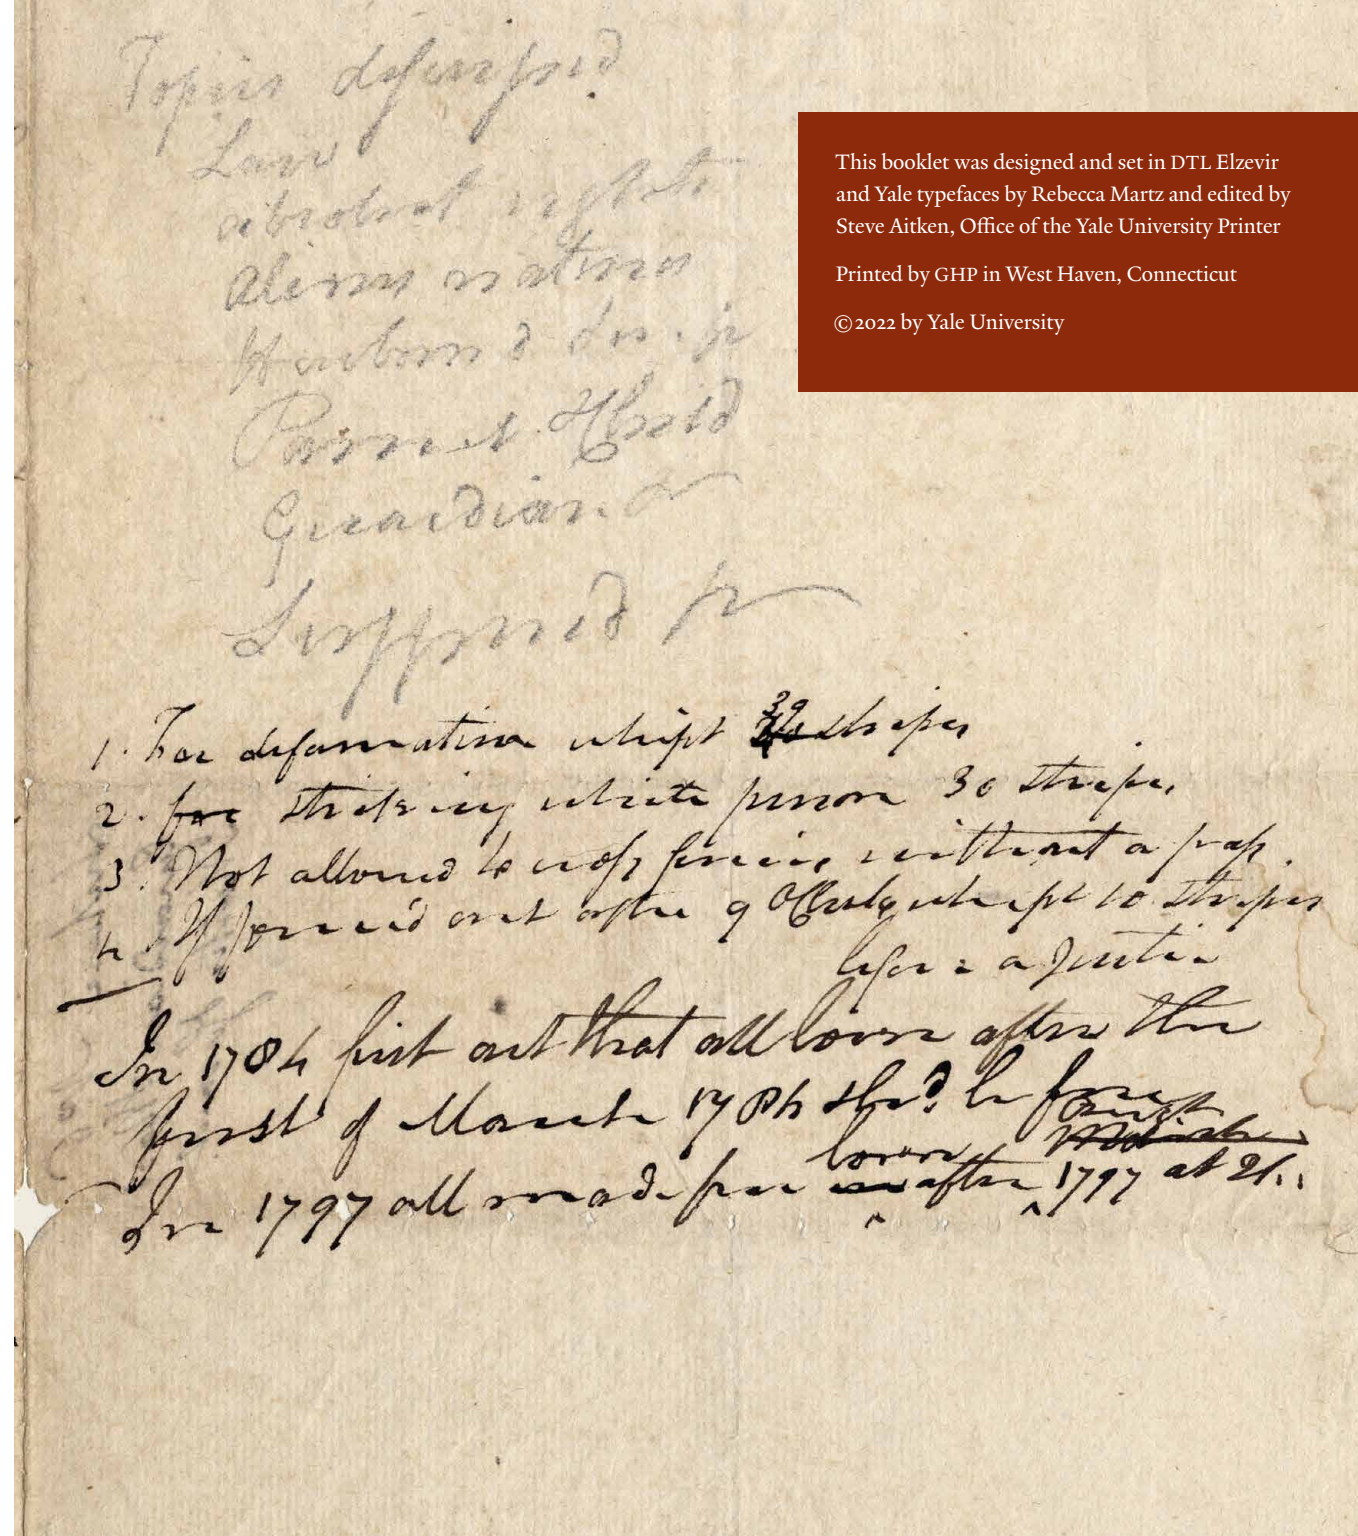 Topics discussed
Law
absolute rights
Aliens natives
Husband &
Parent & Child
Guardian &
Suppressed
This booklet was designed and set in DTL Elzevir
and Yale typefaces by Rebecca Martz and edited by
Steve Aitken, Office of the Yale University Printer
Printed by GHP in West Haven, Connecticut
©2022 by Yale University
1. For defamation whipt 39 stripes
2. for striking white person 30 stripes
3. Not allowed to cross ferries without a pass.
4. If found out after 9 OClock whipt 10 stripes
before a Justice
In 1784 first act that all born after the
first of March 1784 shd. be free
In 1797 all made free born after August 1797 at 21.